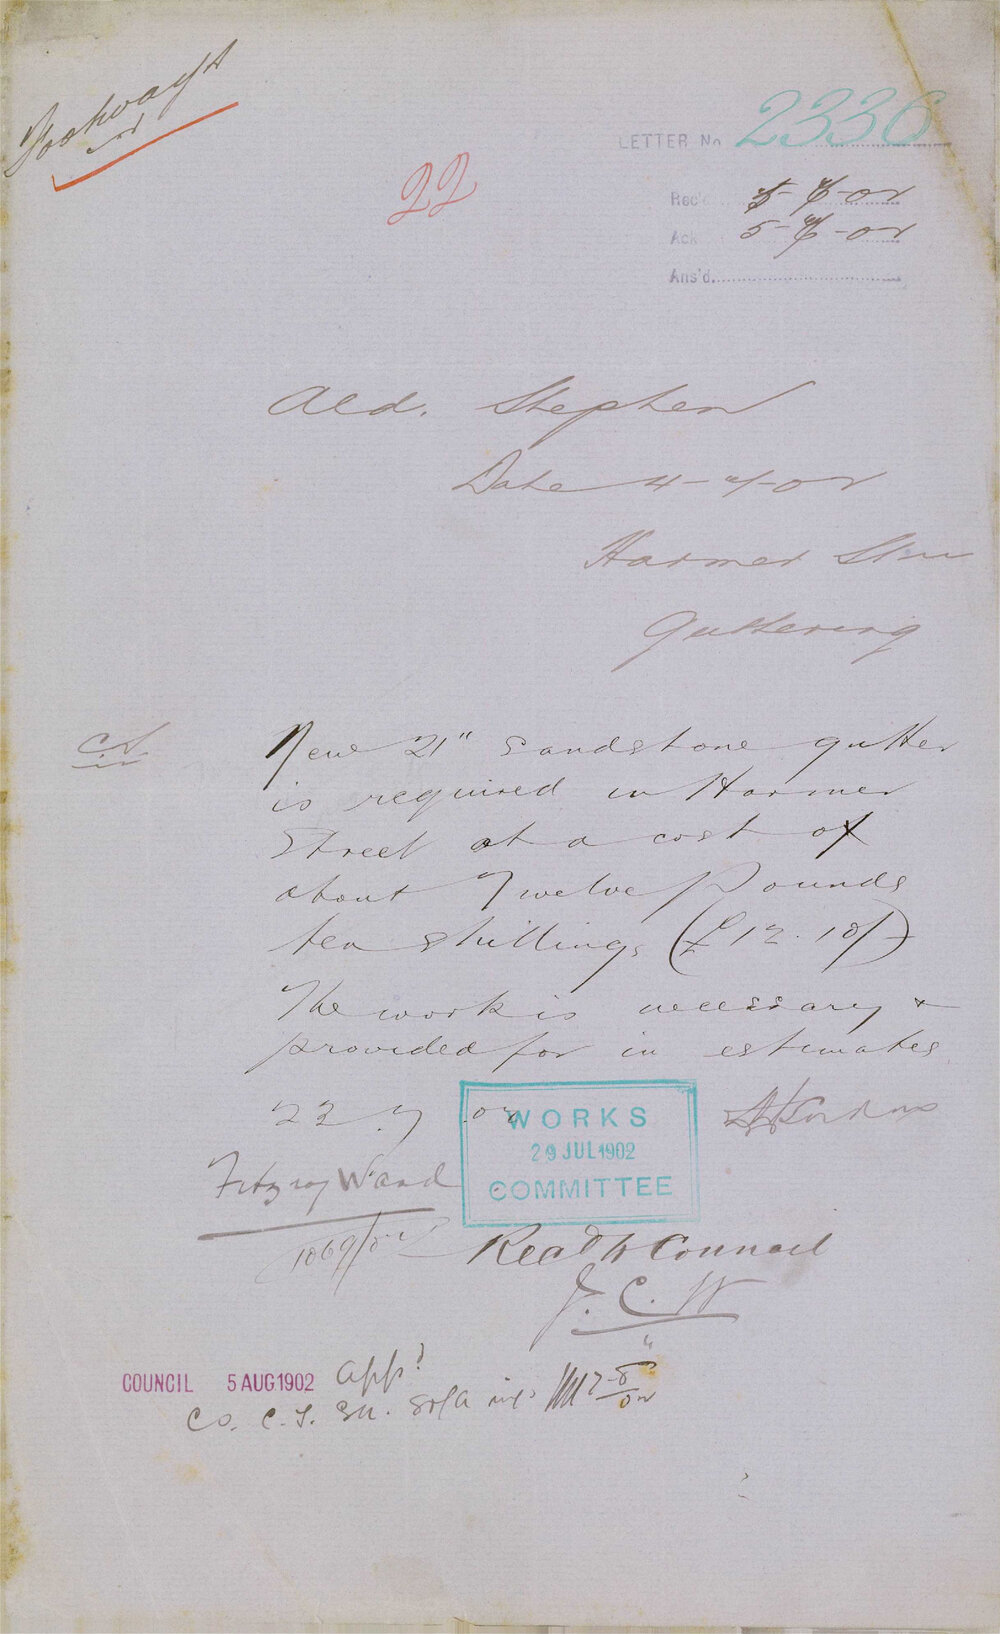 Footways
LETTER No 2336
22
Rec'd 5-7-02
Ack 5-7-02
Ans'd
Ald. Stephen
Date 4-7-02
Harmer St
Guttering
C.S.
New 21" sandstone gutter
is required in Harmer
Street at a cost of
about Twelve Pounds
ten shillings (£12.10/-)
The work is necessary &
provided for in estimates
22.7.02
WORKS
29 JUL 1902
COMMITTEE
Fitzroy Ward
1069/02
Read to Council
J. C. W
COUNCIL 5 AUG 1902 appd
Co. C.S.